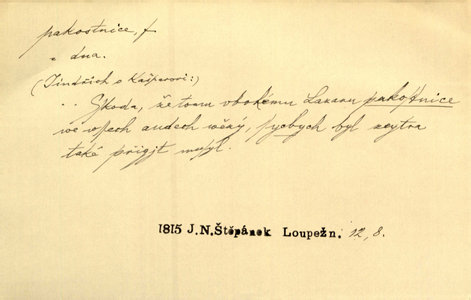 pakostnice, f
= dna.
(Jindřich o Kašparovi:)
.. Škoda, že tomu ubohému Lazaru pakostnice
we wssech audech wězý, sycbych byl zeytra
také přigjt musyl.
1815 J.N.Štěpánek Loupežn. 12, 8.